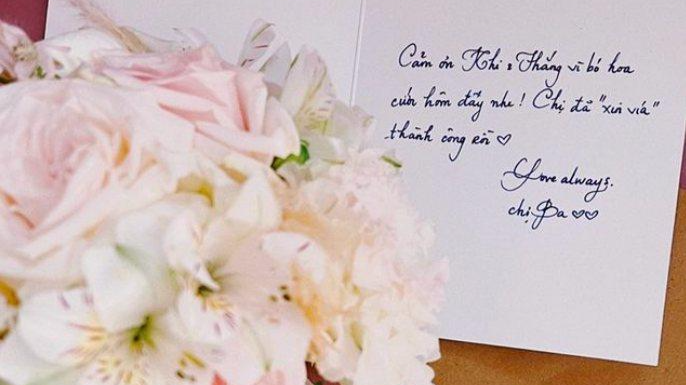 Cảm ơn Khi & Thắng vì bó hoa
cưới hôm đấy nhe! Chị đã "xin vía"
thành công rồi ♡
Love always.
chị Ba ♡♡